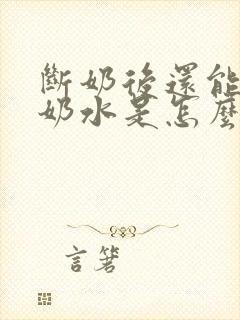 斷奶後還能
奶水是怎麼
言箸